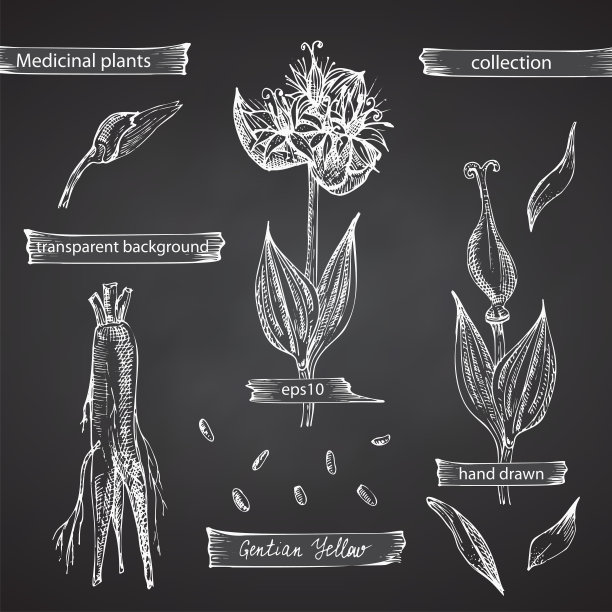 Medicinal plants
collection
transparent background
eps10
hand drawn
Gentian Yellow